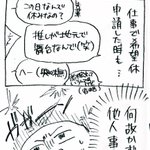 仕事で希望休
申請した時も…
この日なんで
休みなの？
推しが地元で
舞台なんで(笑)
へー
何故かわ
他人事